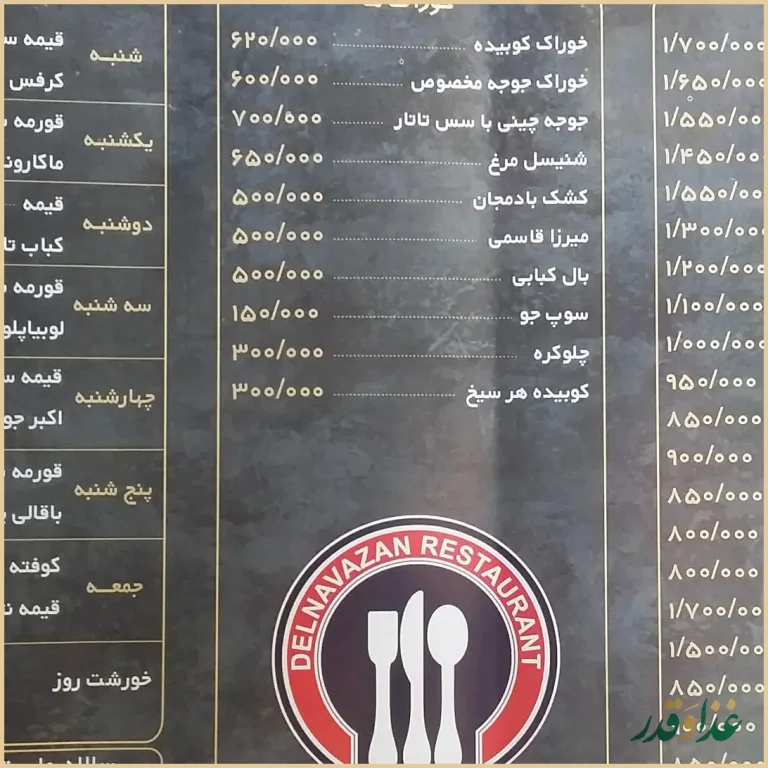 ۱/۷۰۰/۰۰۰
۱/۶۵۰/۰۰۰
۱/۵۵۰/۰۰۰
۱/۴۵۰/۰۰۰
۱/۵۵۰/۰۰۰
۱/۳۰۰/۰۰۰
۱/۲۰۰/۰۰۰
۱/۱۰۰/۰۰۰
۱/۰۰۰/۰۰۰
۹۵۰/۰۰۰
۸۵۰/۰۰۰
۹۰۰/۰۰۰
۸۵۰/۰۰۰
۸۰۰/۰۰۰
۸۰۰/۰۰۰
۱/۷۰۰/۰۰۰
۱/۵۰۰/۰۰۰
۸۵۰/۰۰۰
خوراک کوبیده ۶۲۰/۰۰۰
خوراک جوجه مخصوص ۶۰۰/۰۰۰
جوجه چینی با سس تاتار ۷۰۰/۰۰۰
شنیسل مرغ ۶۵۰/۰۰۰
کشک بادمجان ۵۰۰/۰۰۰
میرزا قاسمی ۵۰۰/۰۰۰
بال کبابی ۵۰۰/۰۰۰
سوپ جو ۱۵۰/۰۰۰
چلوکره ۳۰۰/۰۰۰
کوبیده هر سیخ ۳۰۰/۰۰۰
DELNAVAZAN RESTAURANT
شنبه
قیمه
کرفس
یکشنبه
قورمه
ماکارون
دوشنبه
قیمه
کباب
سه شنبه
قورمه
لوبیاپلو
چهارشنبه
قیمه
اکبر
پنج شنبه
قورمه
باقالی
جمعه
کوفته
قیمه
خورشت روز
غذا و قدر